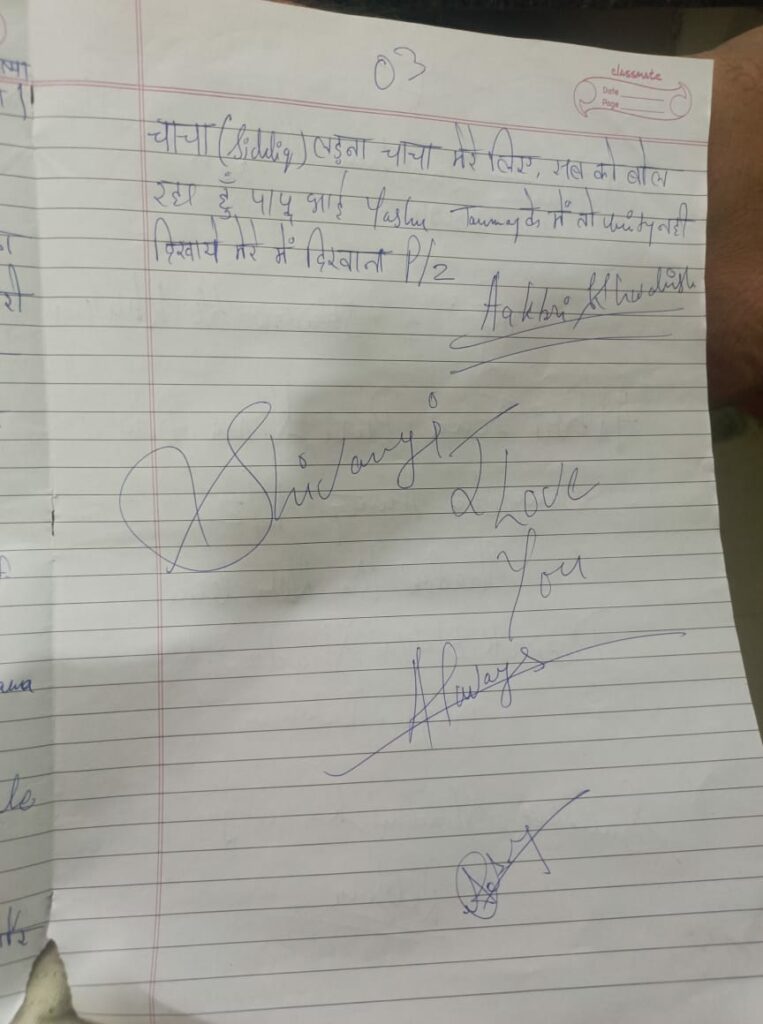 03
classmate
Date
Page
चाचा (Siddiq) लड़ना चाचा मेरे लिए, सब को बोल
रहा हूँ पापू भाई Yashu Tanmay के में तो Unity नही
दिखाये मेरे में दिखाना P/2
Aakhri Khwahish
Shivangi
I Love
You
Always